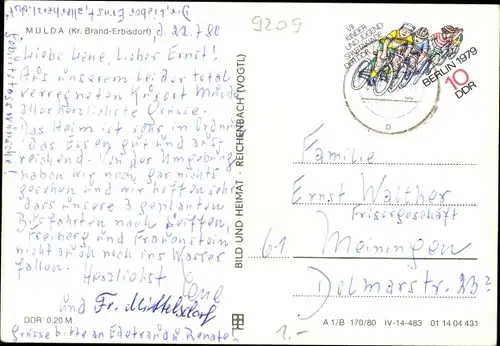 MULDA (Kr. Brand-Erbisdorf)
d 22.7.80
Liebe Lene, Lieber Ernst!
Aus unserem leider total
verregneten Kurort Mulda
allerherzlichste Grüsse.
Das Heim ist ganz in Ordnung
das Essen gut und aus-
reichend. Von der Umgebung
haben wir noch gar nichts
gesehen und wir hoffen sehr
dass unsere 3 geplanten
Busfahrten nach Seiffen,
Freiberg und Frauenstein
nicht auch noch ins Wasser
fallen. Herzlichst
Lene
und Fr. Mittelsdorf
DDR 0,20 M
Grüsse bitte an Edeltraud u. Renate
Dir, lieber Ernst, allerherzlichste
BILD UND HEIMAT · REICHENBACH (VOGTL)
9209
VII.
KINDER
UND JUGEND
SPARTAKIADE
DER DDR
BERLIN 1979
10
DDR
Familie
Ernst Walther
Frisörgeschäft
61 Meiningen
Delmarstr. 23?
1.-
A 1/B 170/80 IV-14-483 01 14 04 431